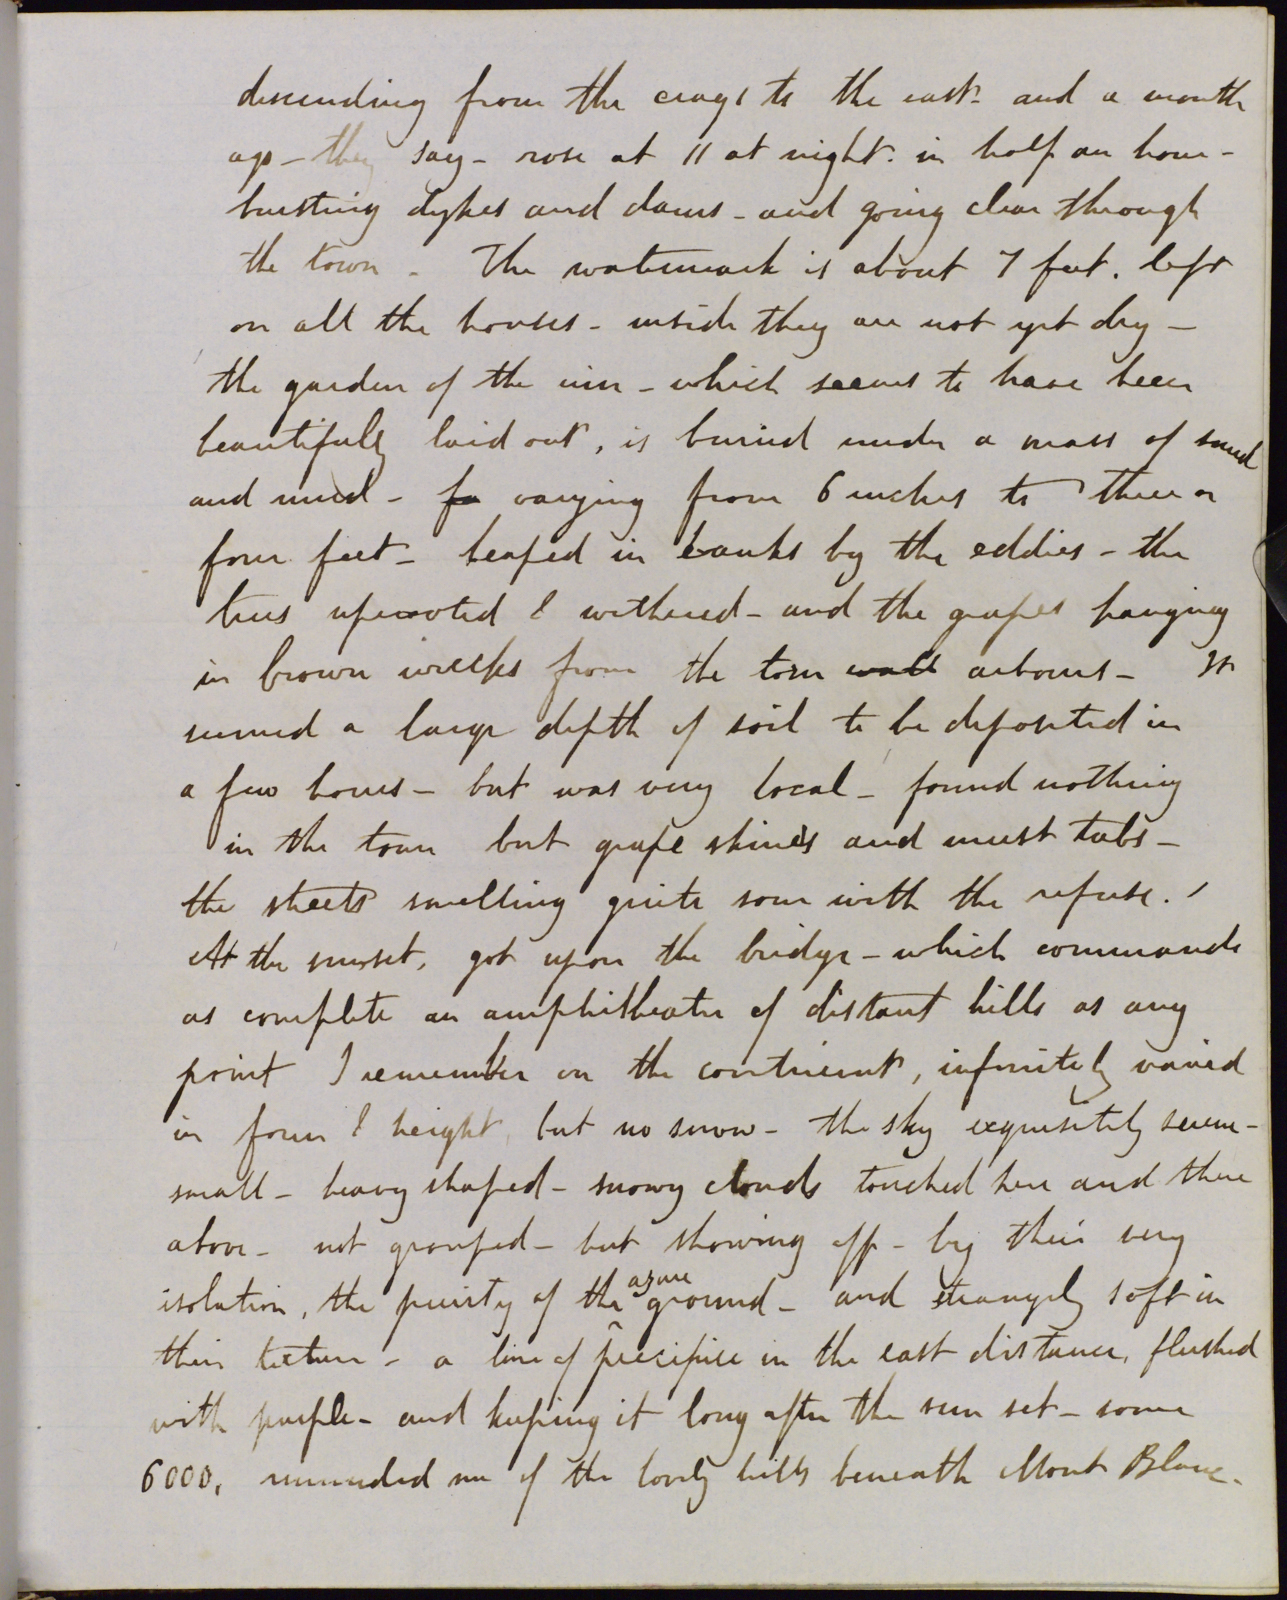 descending from the crags to the east - and a month
ago - they say - rose at 11 at night. in half an hour -
bursting dykes and dams - and going clear through
the town - The watermark is about 7 feet. left
on all the houses - inside they are not yet dry -
the garden of the inn - which seems to have been
beautifully laid out, is buried under a mass of sand
and mud - fr varying from 6 inches to three or
four feet - heaped in banks by the eddies - the
trees uprooted & withered - and the grapes hanging
in brown wrecks from the torn wall arbours - It
seemed a large depth of soil to be deposited in
a few hours - but was very local - found nothing
in the town but grape skins and must tubs -
the streets smelling quite sour with the refuse.
At the sunset, got upon the bridge - which commands
as complete an amphitheatre of distant hills as any
point I remember on the continent, infinitely varied
in form & height, but no snow - the sky exquisitely serene -
small - heavy shaped - snowy clouds touched here and there
above - not grouped - but showing off - by their very
isolation, the purity of the azure ground - and strangely soft in
their texture - a line of precipice in the east distance, flushed
with purple - and keeping it long after the sun set - some
6000, reminded me of the lovely hills beneath Mont Blanc -